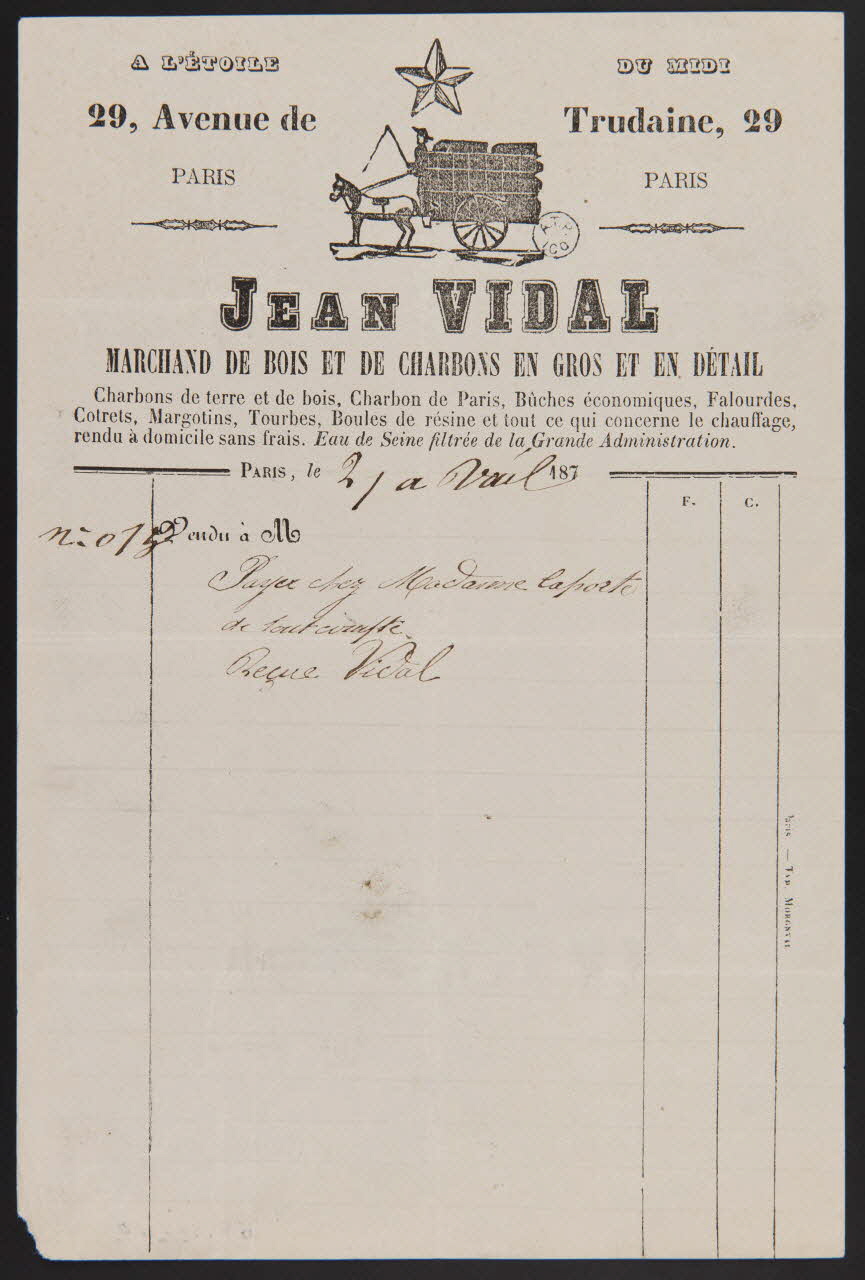 A L'ÉTOILE DU MIDI
29, Avenue de Trudaine, 29
PARIS PARIS
JEAN VIDAL
MARCHAND DE BOIS ET DE CHARBONS EN GROS ET EN DÉTAIL
Charbons de terre et de bois, Charbon de Paris, Bûches économiques, Falourdes,
Cotrets, Margotins, Tourbes, Boules de résine et tout ce qui concerne le chauffage,
rendu à domicile sans frais. Eau de Seine filtrée de la Grande Administration.
PARIS, le 21 avril 187
F. C.
Vendu à M
Payer chez Madame laporte
de tout compte
Reçue Vidal
Paris. — Typ. MORONVAL